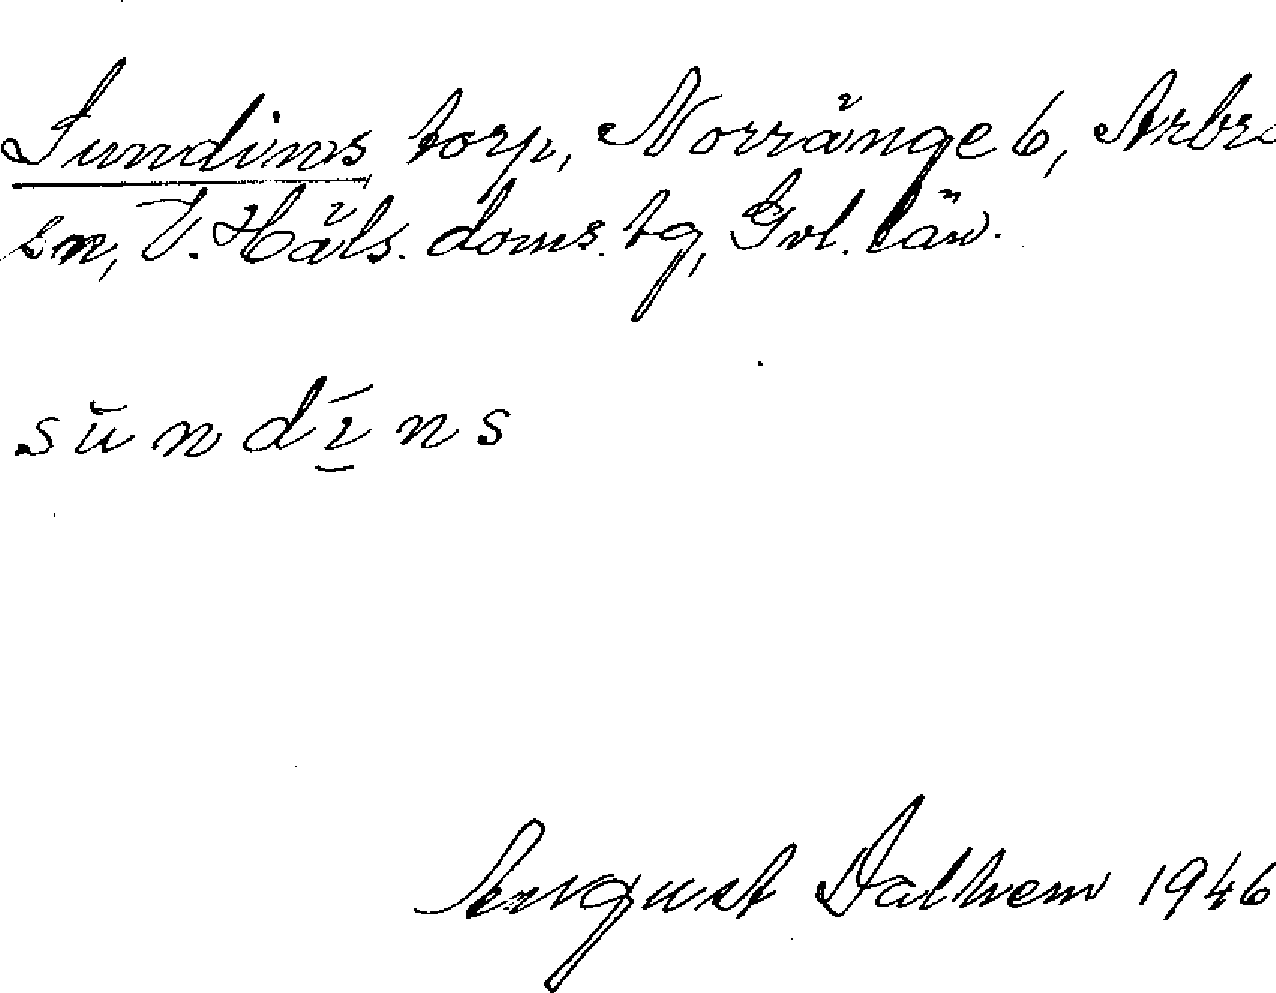 Sundins torp, Norränge 6, Arbrå
sn, V. Häls. doms. tg, Gvl. län.
sŭndí̮ns
August Dalhem 1946